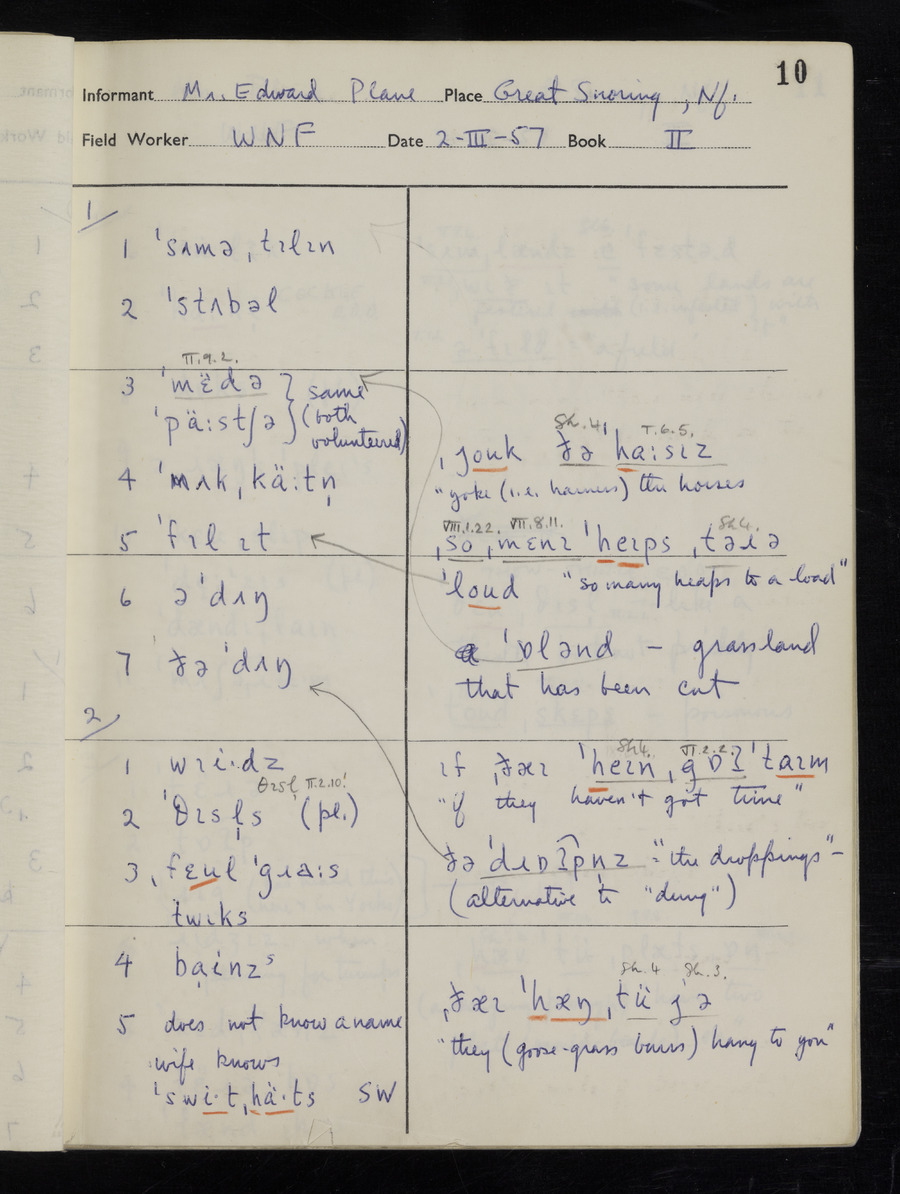 10
Informant Mr. Edward Plane Place Great Snoring, Nf.
Field Worker WNF Date 2-III-57 Book II
1/
1 ˈsʌmə ˌtɪlɪn
2 ˈstʌbəl
II.9.2.
3 ˈmɛ̈də } same
ˈpä:stʃə } (both
volunteered)
4 ˈmʌk ˌkä:tn̩
5 ˈfɪlɪt
6 əˈdʌŋ
7 ðəˈdʌŋ
2/
1 wɹi·dz
θɪsl̩ II.2.10!
2 ˈθɪsl̩s (pl.)
3 ˌfɛul ˈgɹa:s
twɪks
4 bạinzˢ
5 does not know a name
wife knows
ˈswi·t ˌhä·ts SW
Sh.4 I.6.5.
ˌjouk ðə ˈha:sɪz
"yoke (i.e. harness) the horses
VIII.1.22. VII.8.11. Sh4.
ˌso ˌmɛnɪ ˈheɪps ˌtəɹə
ˈloud "so many heaps to a load"
ˈɒlənd – grassland
that has been cut
Sh4. VI.2.2.
ɪf ˌðæɪ ˈheɪn ˌgɒʔ ˈtaɪm
"if they haven't got time"
ðəˈdɹɒʔpnz = "the droppings" –
(alternative to "dung")
Sh.4 Sh.3.
ˌðæɪ ˈhæŋ ˌtü jə
"they (goose-grass burrs) hang to you"